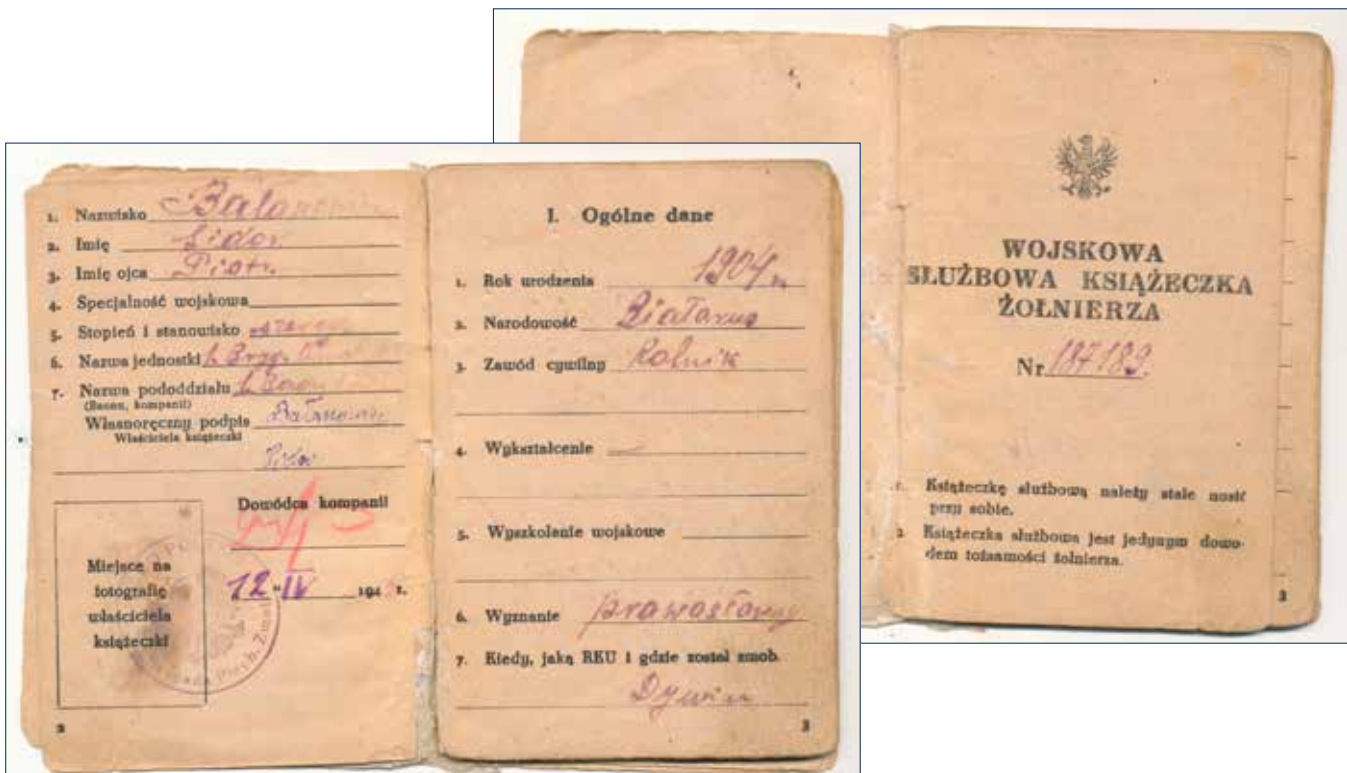 1. Nazwisko
2. Imię Sidor
3. Imię ojca Piotr
4. Specjalność wojskowa
5. Stopień i stanowisko
6. Nazwa jednostki
7. Nazwa pododdziału
(Baonu, kompanii)
Własnoręczny podpis
Właściciela książeczki
Dowódca kompanii
Miejsce na
fotografię
właściciela
książeczki
12 " IV 194 r.
2
I. Ogólne dane
1. Rok urodzenia 1904 r.
2. Narodowość Białorus
3. Zawód cywilny Rolnik
4. Wykształcenie
5. Wyszkolenie wojskowe
6. Wyznanie prawosławny
7. Kiedy, jaką RKU i gdzie został zmob.
Dywin
3
WOJSKOWA
SŁUŻBOWA KSIĄŻECZKA
ŻOŁNIERZA
Nr 187189.
Książeczkę służbową należy stale nosić
przy sobie.
Książeczka służbowa jest jedynym dowo-
dem tożsamości żołnierza.
3